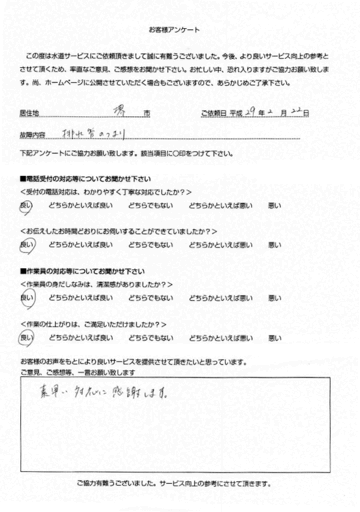 お客様アンケート
この度は水道サービスにご依頼頂きまして誠に有難うございました。今後、より良いサービス向上の参考と
させて頂くため、率直なご意見、ご感想をお聞かせ下さい。お忙しい中、恐れ入りますがご協力お願い致しま
す。尚、ホームページに公開させていただく場合もございますので、あらかじめご了承下さい。
居住地 堺 市 ご依頼日 平成 29年 2月 22日
故障内容 排水管のつまり
下記アンケートにご協力お願い致します。該当項目に〇印をつけて下さい。
■電話受付の対応等についてお聞かせ下さい
<受付の電話対応は、わかりやすく丁寧な対応でしたか?>
良い どちらかといえば良い どちらでもない どちらかといえば悪い 悪い
<お伝えしたお時間どおりにお伺いすることができていましたか?>
良い どちらかといえば良い どちらでもない どちらかといえば悪い 悪い
■作業員の対応等についてお聞かせ下さい
<作業員の身だしなみは、清潔感がありましたか?>
良い どちらかといえば良い どちらでもない どちらかといえば悪い 悪い
<作業の仕上がりは、ご満足いただけましたか?>
良い どちらかといえば良い どちらでもない どちらかといえば悪い 悪い
お客様のお声をもとにより良いサービスを提供させて頂きたいと思っています。
ご意見、ご感想等、一言お願い致します
素早い対応に感謝します。
ご協力有難うございました。サービス向上の参考にさせて頂きます。